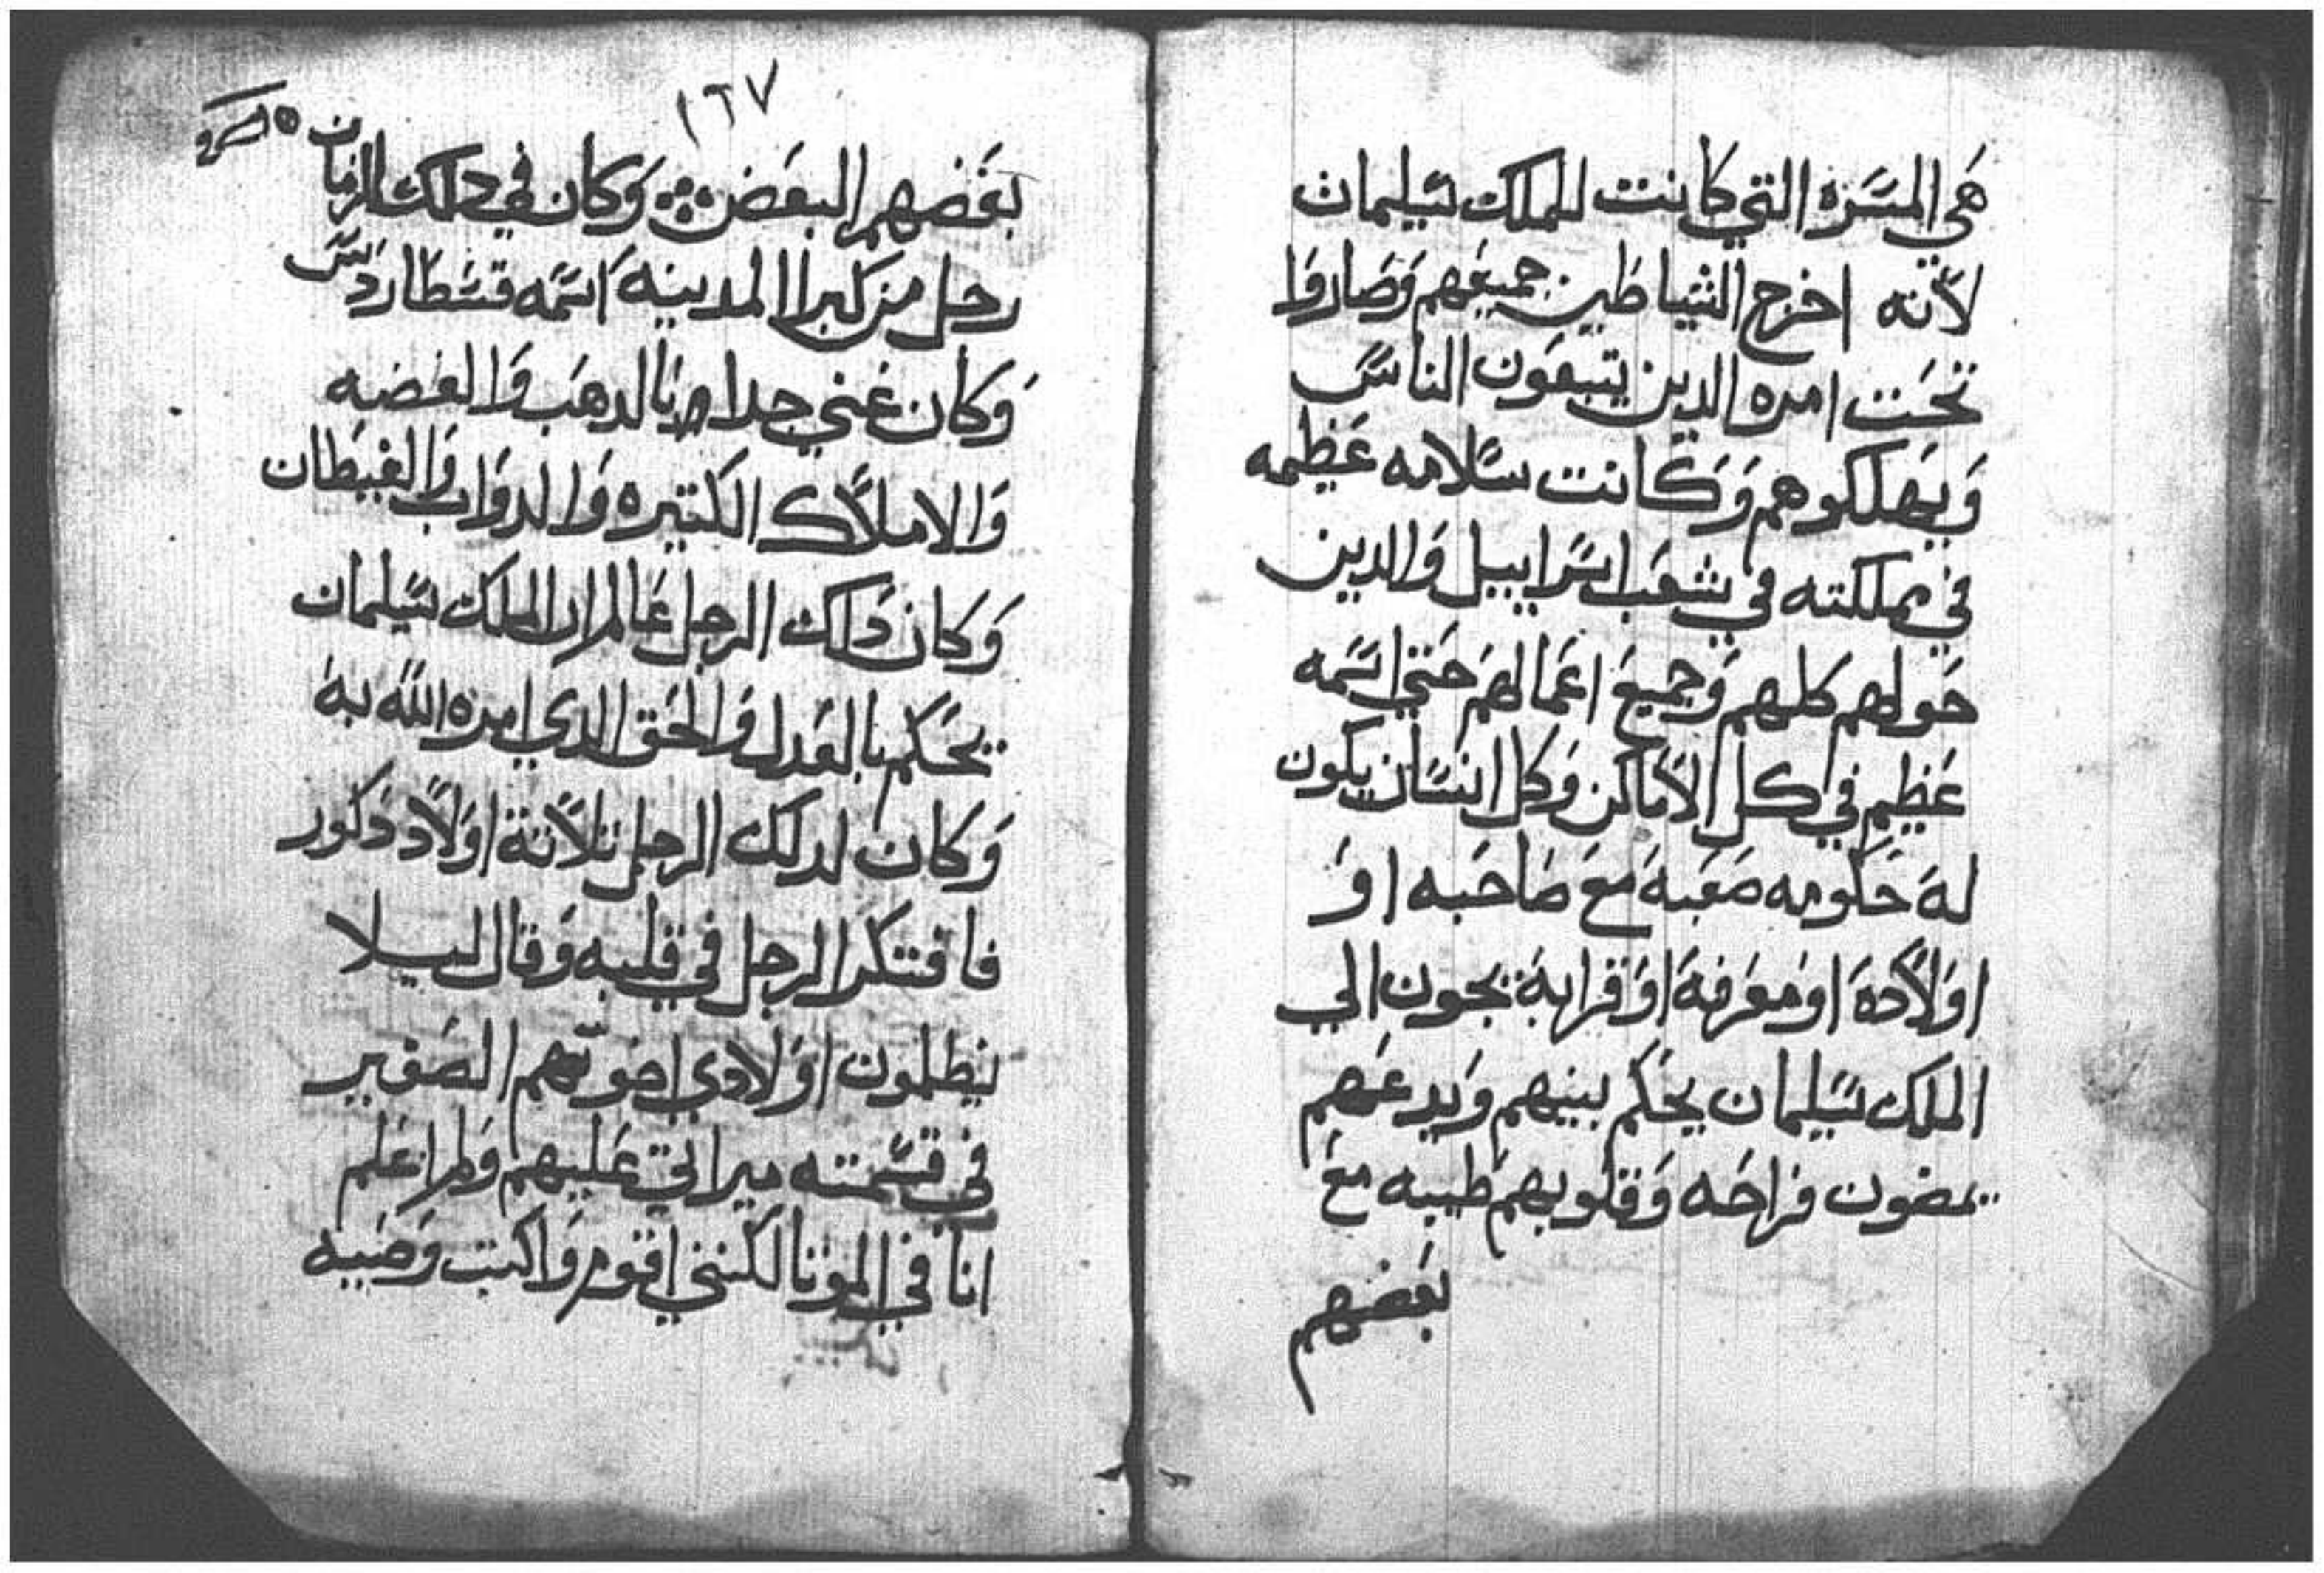 هي المسره التي كانت للملك سليمان
لانه اخرج الشياطين جميعهم وصاروا
تحت امره الدين يتبعون الناس
ويهلكوهم وكانت سلامه عظيمه
في مملكته في شعب اسراييل والدين
حولهم كلهم وجميع اعمالهم حتي اسمه
عظيم في كل الاماكن وكل انسان يكون
له حكومه صعبة مع صاحبه او
اولاده او معرفة او قرابة يجون الي
الملك سليمان يحكم بينهم ويدعهم
يمضون فراحه وقلوبهم طيبه مع
بعضهم
١٦٧
بعضهم البعض وكان في دلك الزمان
رجل من كبرا المدينه اسمه قسطاردس
وكان غني جدا بالدهب والفضه
والاملاك الكتيره والدواب والغيطان
وكان داك الرجل عالم ان الملك سليمان
يحكم بالعدل والحق الدي امره الله به
وكان لدلك الرجل تلاتة اولاد دكور
فافتكر الرجل في قلبه وقال ليلا
يظلمون اولادي اخوتهم الصغير
في قسمته ميراتي عليهم ولم اعلم
انا في الموتا لكنني اقوم واكتب وصيه